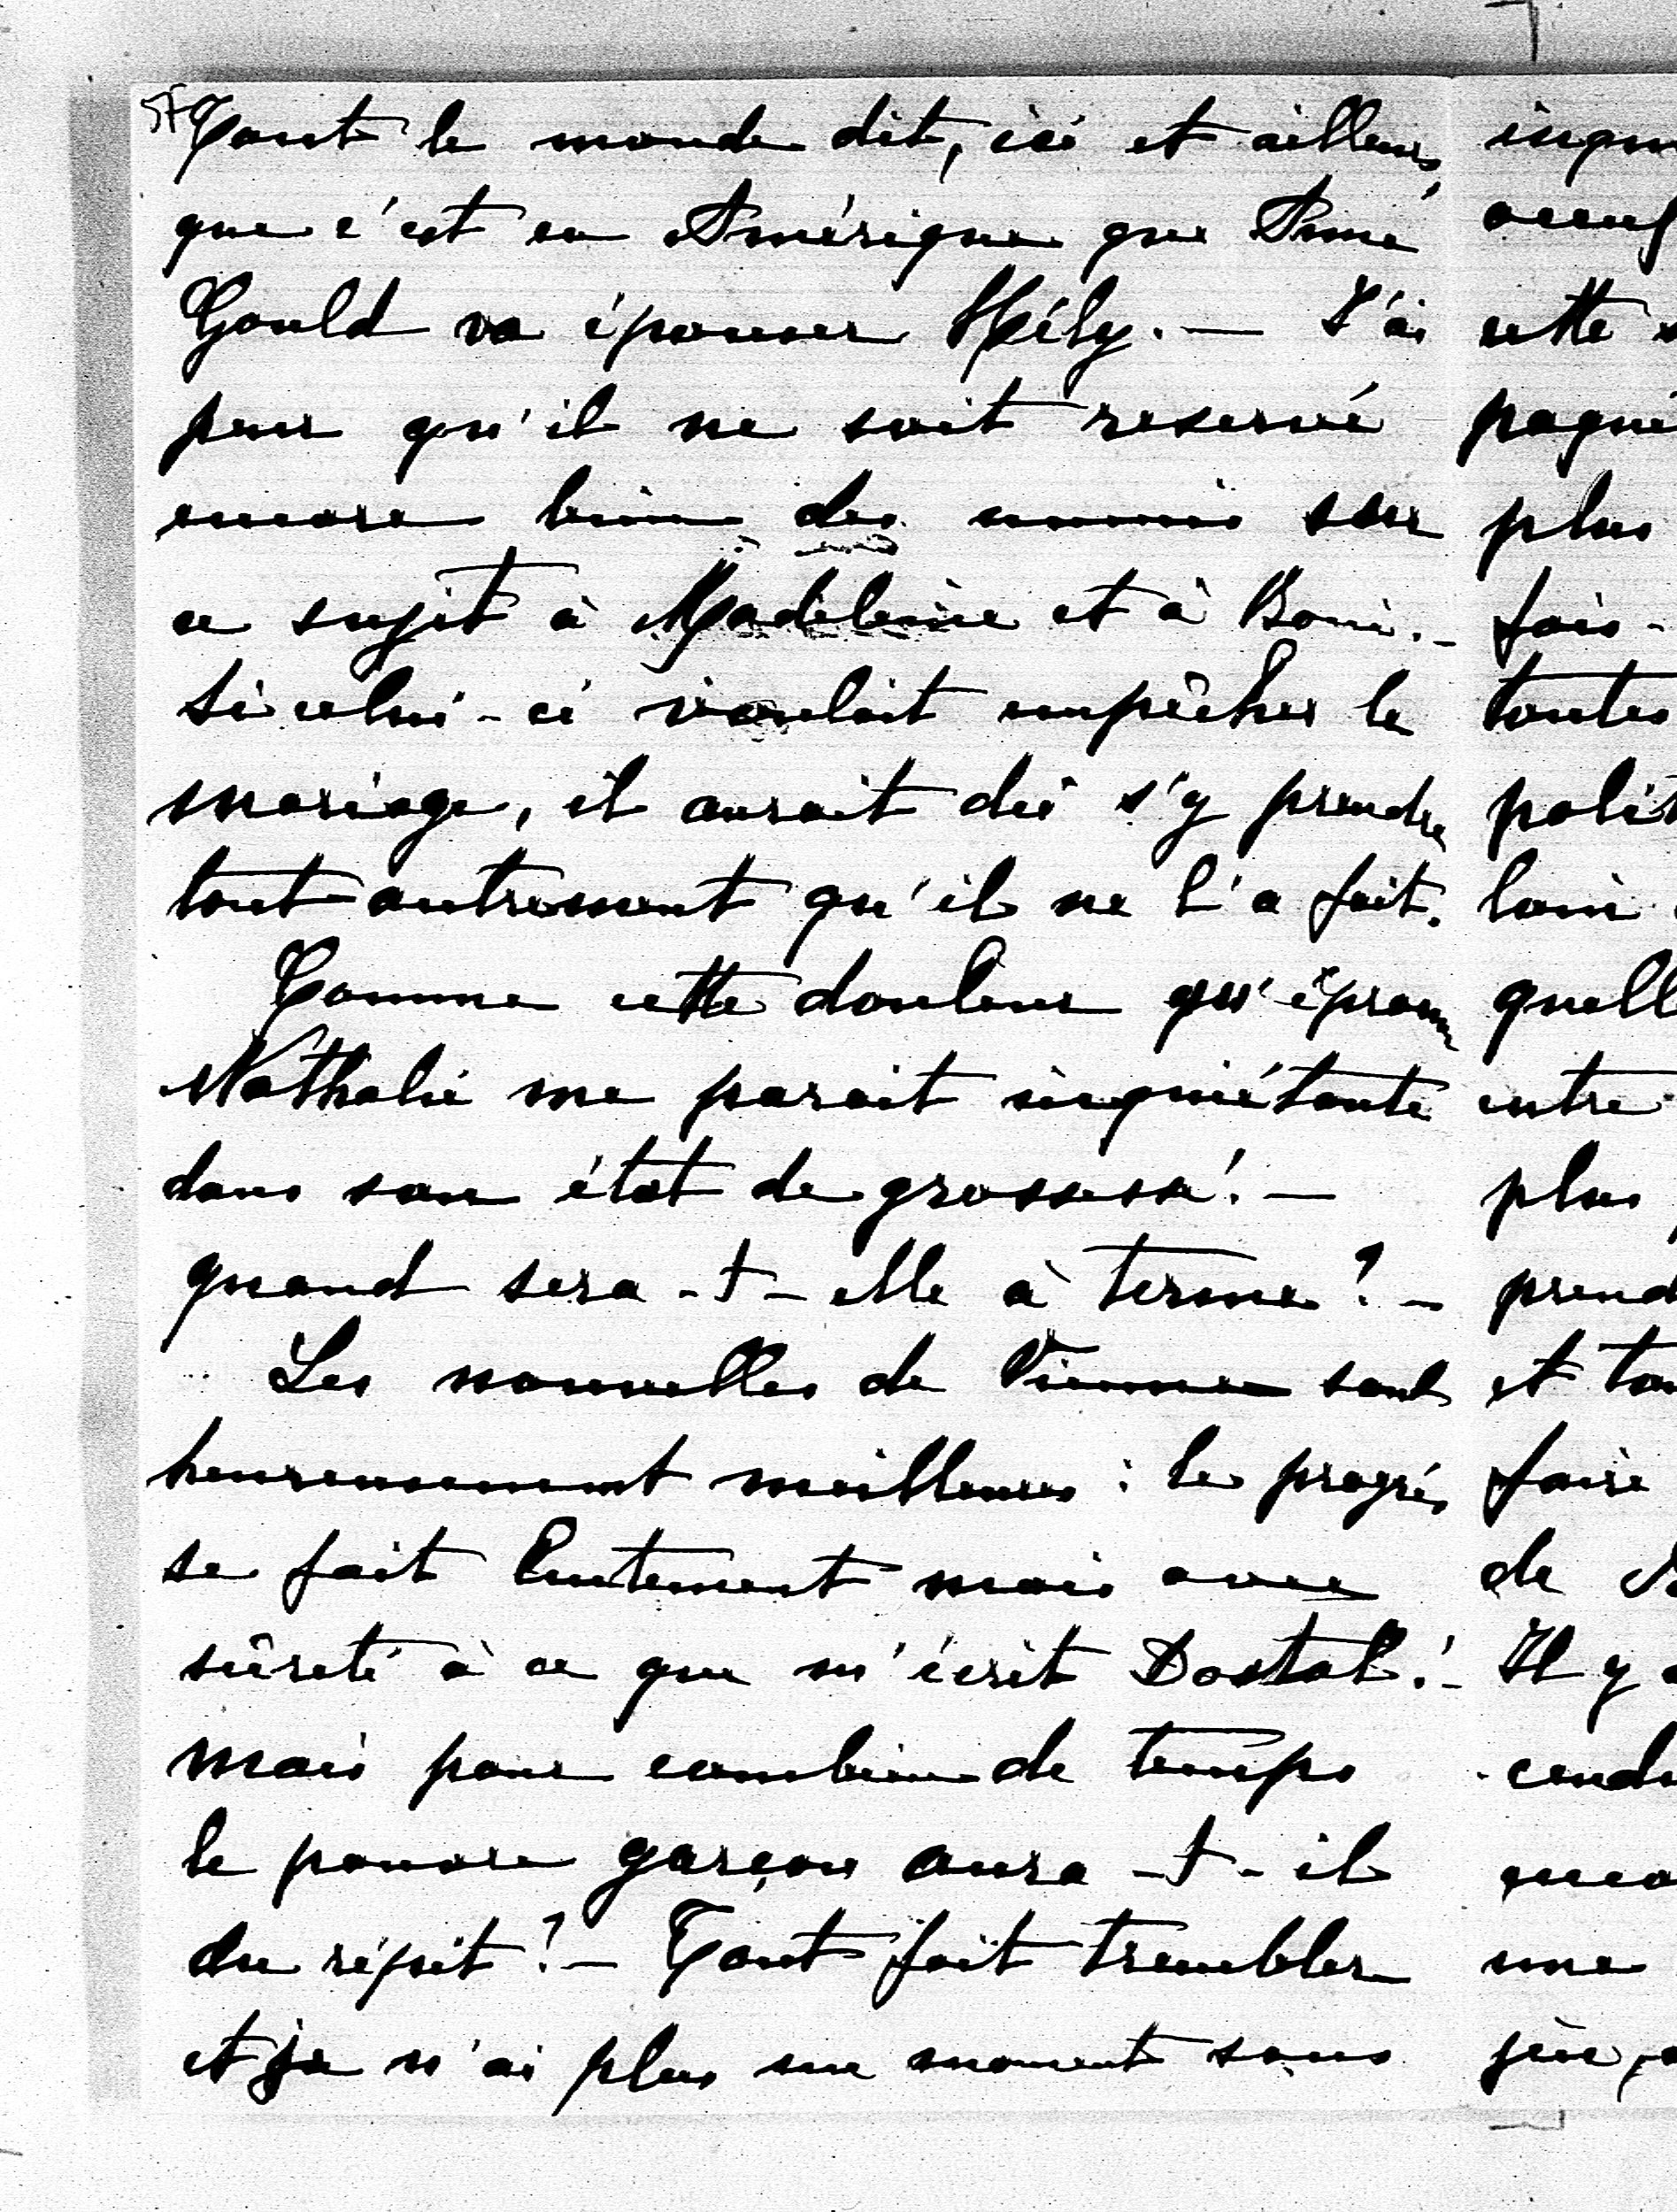 Tout le monde dit, ici et ailleurs,
que c'est en Amérique que Anna
Gould va épouser Hély. — J'ai
peur qu'il ne soit reservé
encore bien des ennuis sur
ce sujet à Madeleine et à Boni. -
Si celui-ci voulait empêcher le
mariage, il aurait dû s'y prendre
tout autrement qu'il ne l'a fait.
Comme cette douleur qu'éprouve
Nathalie me parait inquiétante
dans son état de grossesse! —
quand sera-t-elle à terme? -
Les nouvelles de Vienne sont
heureusement meilleures : le progrès
se fait lentement mais avec
sûreté à ce que m'écrit Dostal! -
mais pour combien de temps
le pauvre garçon aura-t-il
du répit? — Tout fait trembler
et je n'ai plus un moment sans
cette
plus
fois -
toutes
entre
plus
et
faire
de
Il y
une